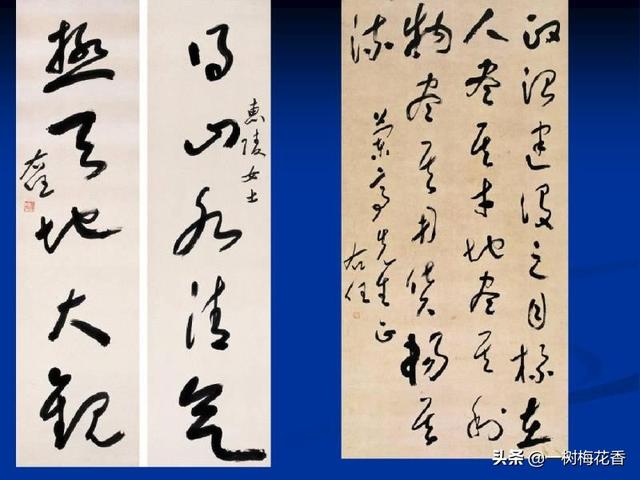 得山水清氣
惠陵女士
極天地大觀
右任
政治建設之目標在
人盡其才地盡其利
物盡其用貨暢其
流
先生正
右任
头条 @一树梅花香